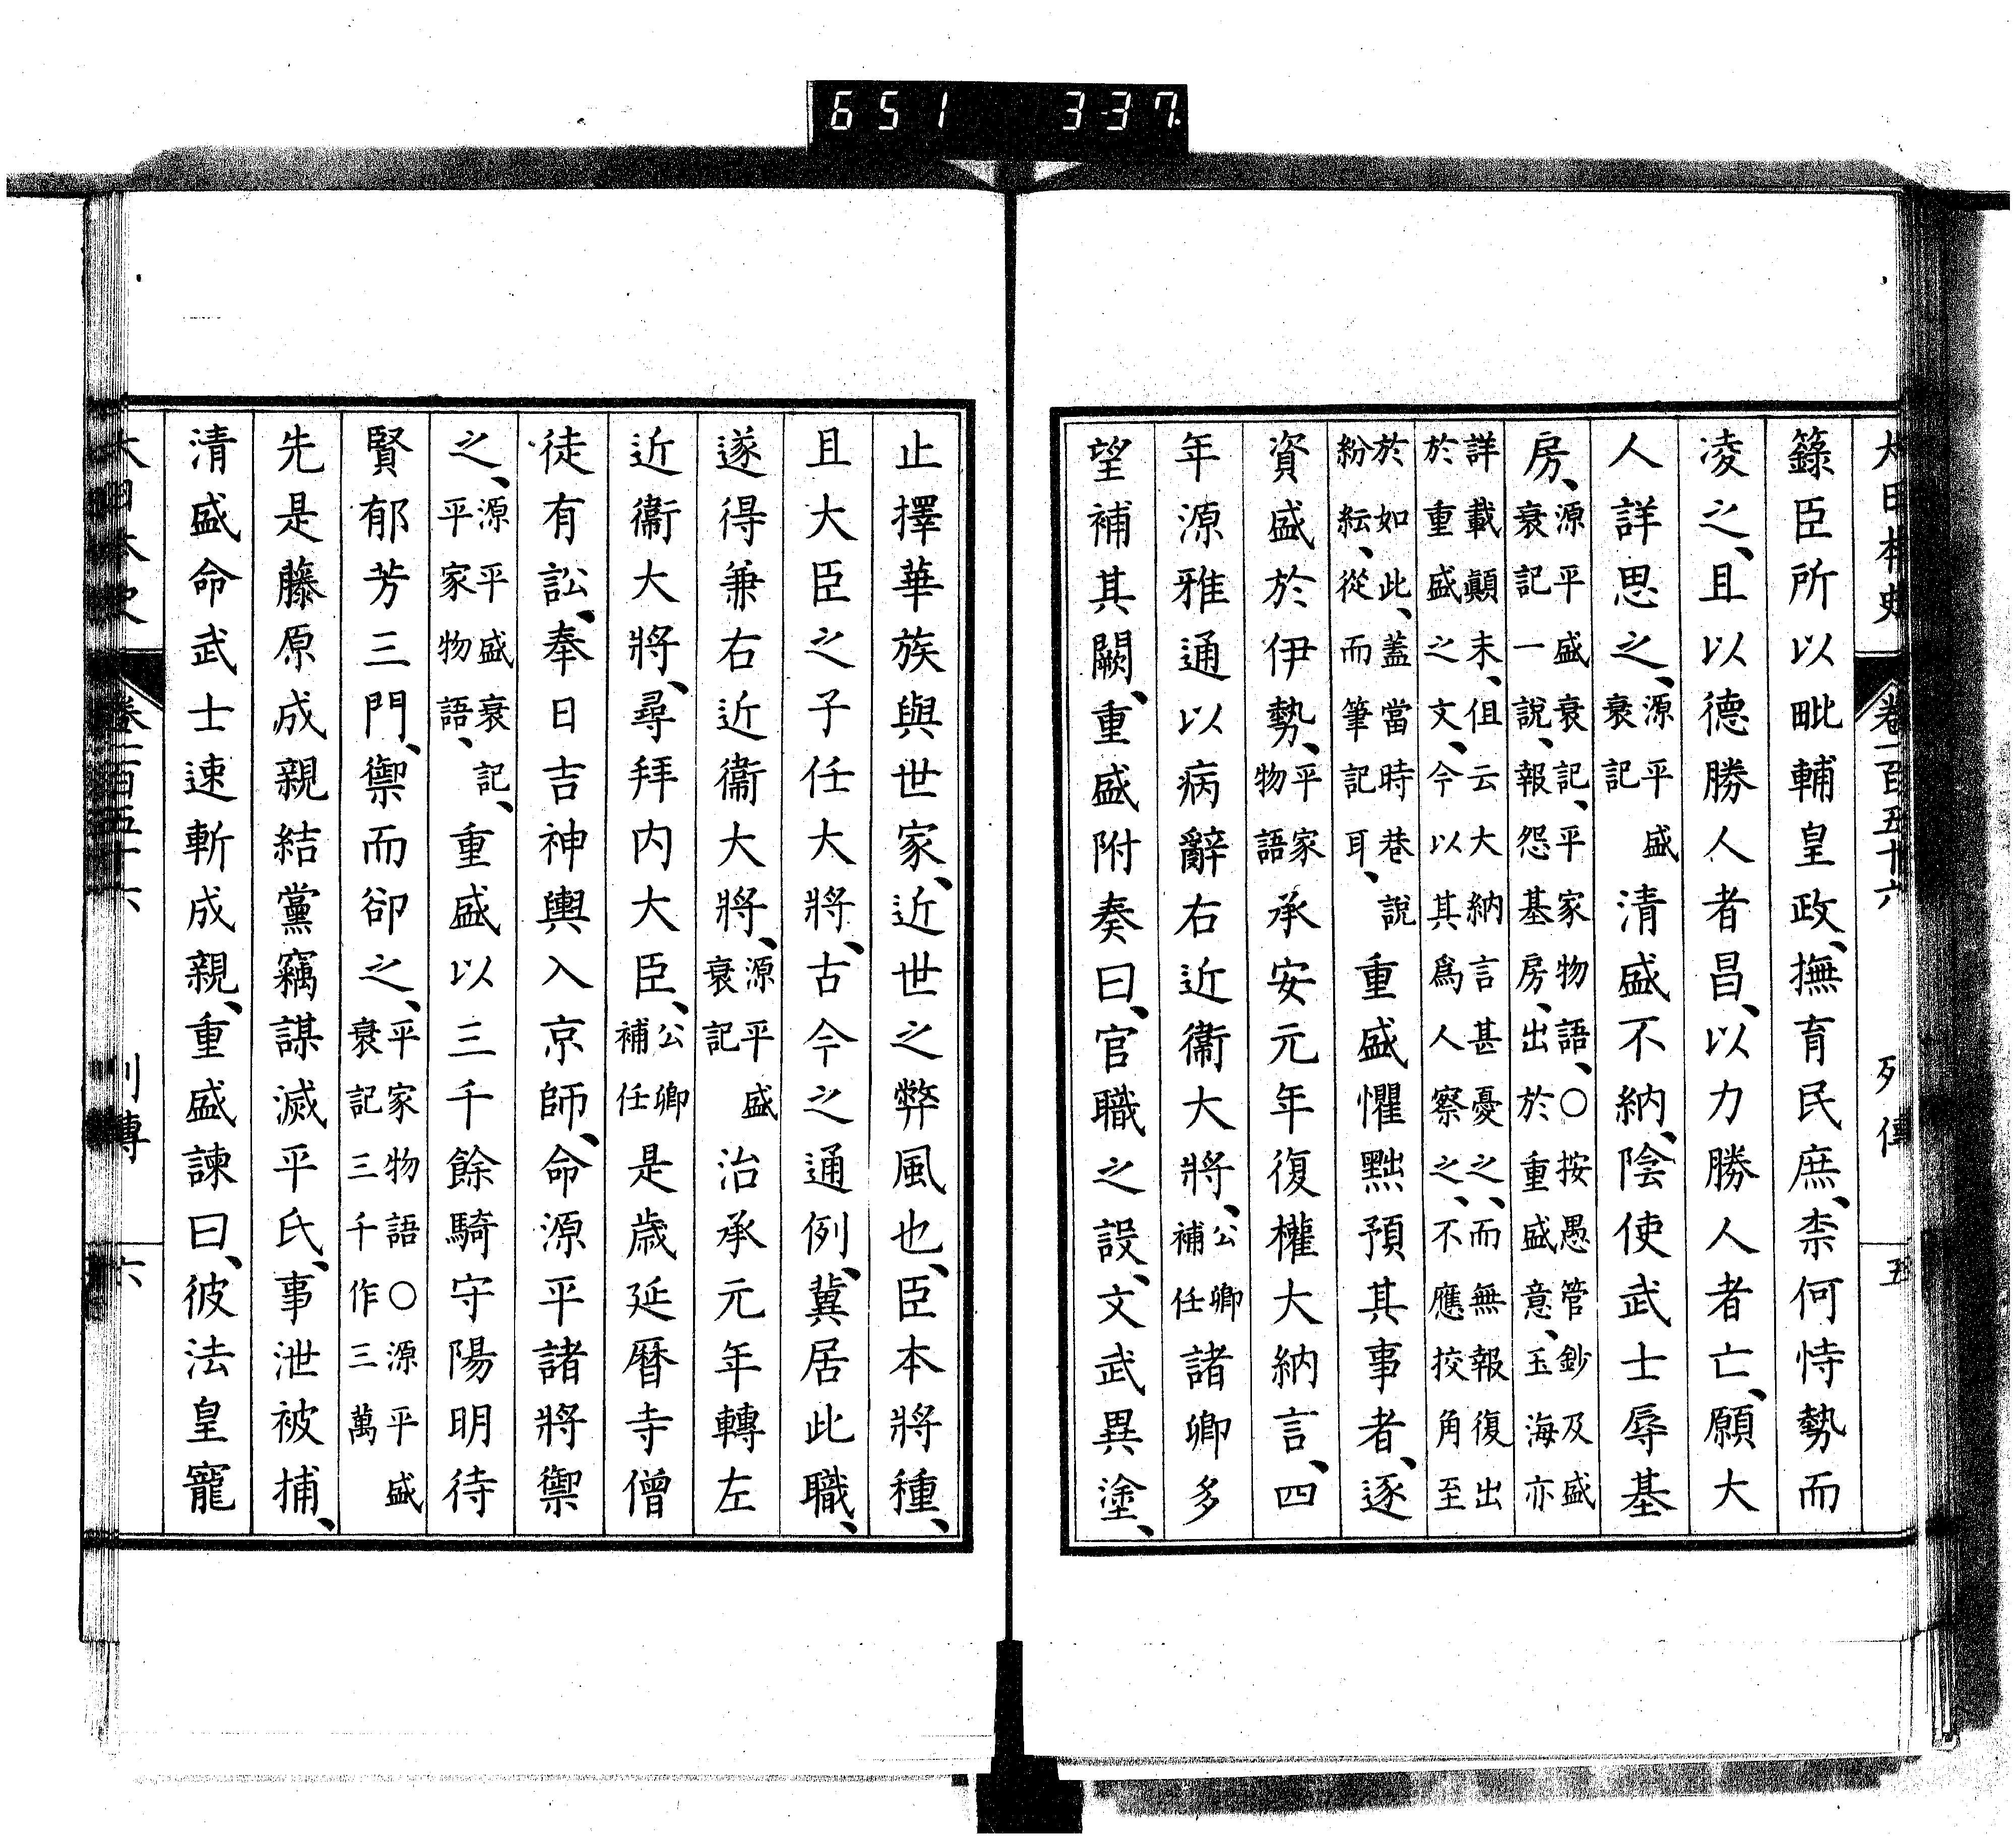 651 337
大日本史 卷一百五十六 列傳 五
籙臣所以毗輔皇政、撫育民庶、柰何恃勢而
凌之、且以德勝人者昌、以力勝人者亡、願大
人詳思之、源平盛衰記清盛不納、陰使武士辱基
房、源平盛衰記、平家物語、○按愚管鈔及盛衰記一說、報怨基房、出於重盛意、玉海亦
詳載顛末、但云大納言甚憂之、而無報復出於重盛之文、今以其爲人察之、不應挍角至
於如此、蓋當時巷說紛紜、從而筆記耳、重盛懼黜預其事者、逐
資盛於伊勢、平家物語承安元年復權大納言、四
年源雅通以病辭右近衞大將、公卿補任諸卿多
望補其闕、重盛附奏曰、官職之設、文武異塗、
止擇華族與世家、近世之弊風也、臣本將種、
且大臣之子任大將、古今之通例、冀居此職、
遂得兼右近衞大將、源平盛衰記治承元年轉左
近衞大將、尋拜内大臣、公卿補任是歲延暦寺僧
徒有訟、奉日吉神輿入京師、命源平諸將禦
之、源平盛衰記、平家物語、重盛以三千餘騎守陽明待
賢郁芳三門、禦而卻之、平家物語○源平盛衰記三千作三萬
先是藤原成親結黨竊謀滅平氏、事泄被捕、
清盛命武士速斬成親、重盛諫曰、彼法皇寵
大日本史 卷一百五十六 列傳 六